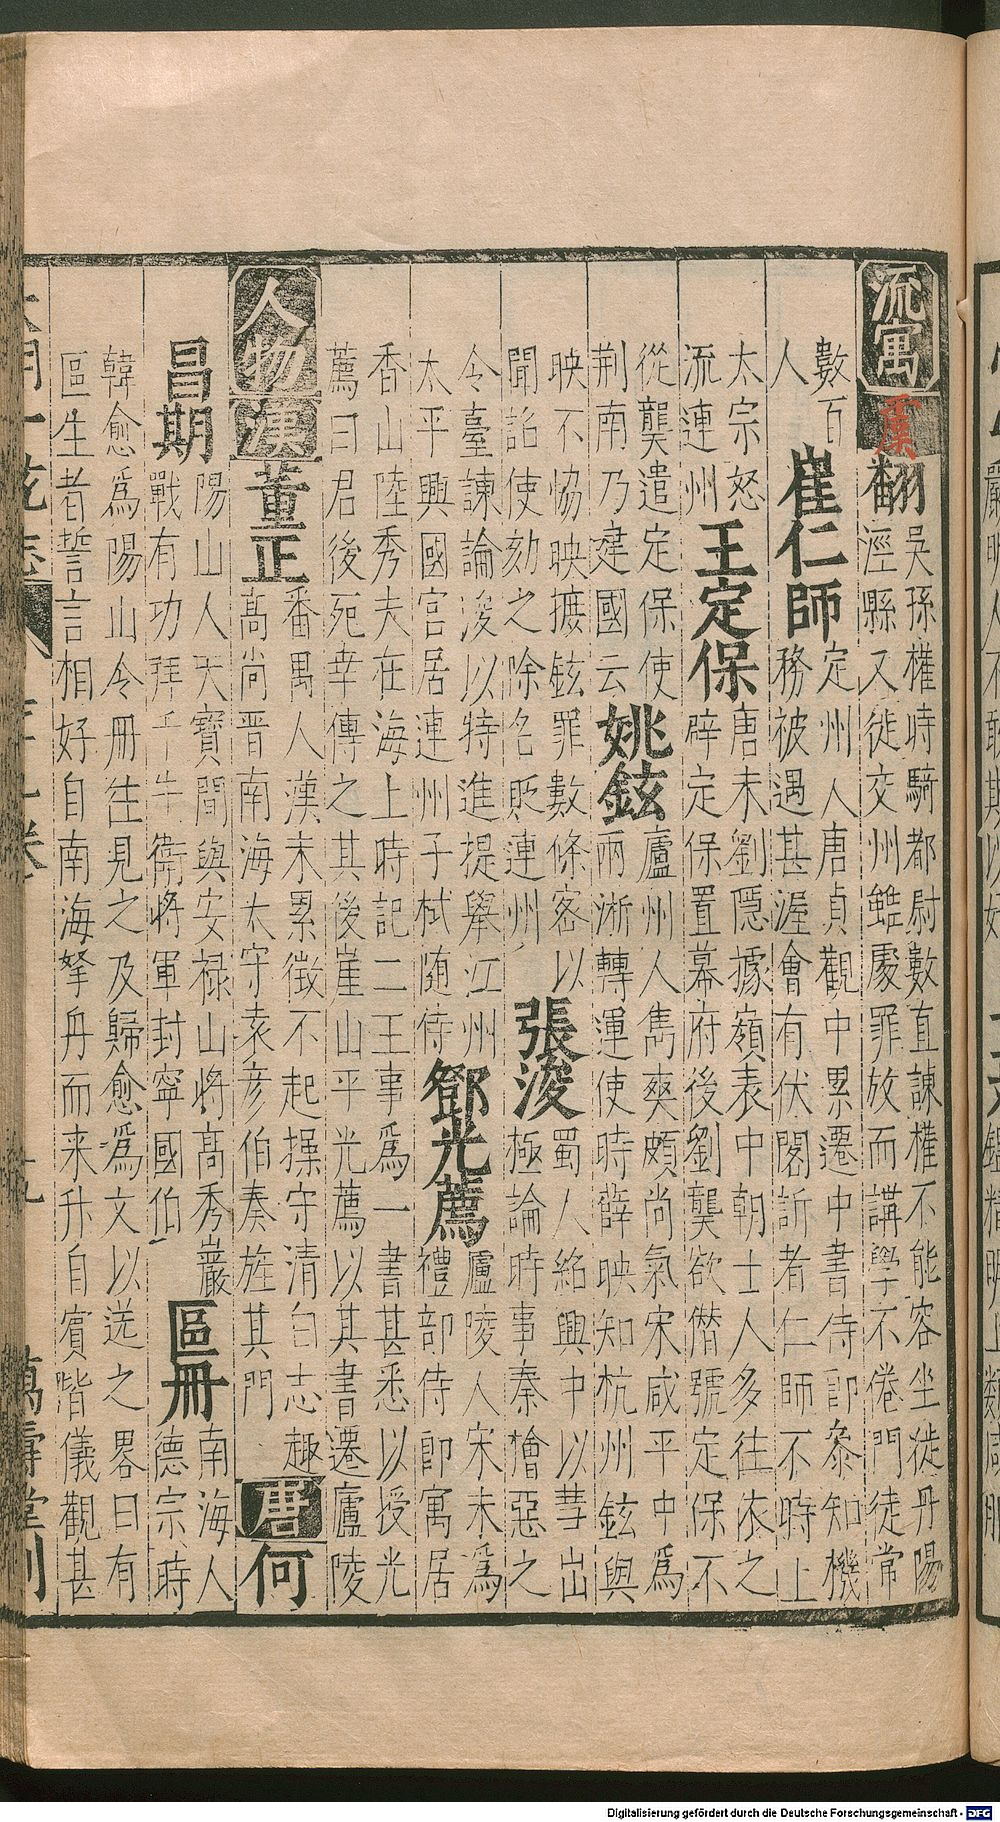 流寓 虞翻 吳孫權時騎都尉數直諫權不能容坐徙丹陽
涇縣又徙交州雖處罪放而講學不倦門徒常
數百
人 崔仁師 定州人唐貞觀中累遷中書侍郎叅知機
務被遇甚渥會有伏閣訴者仁師不時上
太宗怒
流連州 王定保 唐末劉隱據嶺表中朝士人多往依之
辟定保置幕府後劉龑欲僭號定保不
從龑遣定保使
荆南乃建國云 姚鉉 廬州人雋爽頗尚氣宋咸平中為
兩淅轉運使時薛映知杭州鉉與
映不恊映摭鉉罪數條密以
聞詔使劾之除名貶連州 張浚 蜀人紹興中以彗出
極論時事秦檜惡之
令臺諫論浚以特進提舉江州
太平興國宮居連州子栻随侍 鄧光薦 廬陵人宋末為
禮部侍郎寓居
香山陸秀夫在海上時記二王事為一書甚悉以授光
薦曰君後死幸傳之其後崖山平光薦以其書遷廬陵
人物 漢 董正 番禺人漢末累徵不起操守清白志趣
高尚晋南海太守袁彦伯奏旌其門 唐 何
昌期 陽山人天寶間與安禄山將高秀巖
戰有功拜千牛衛將軍封寧國伯 區册 南海人
德宗時
韓愈為陽山令册往見之及歸愈為文以送之畧曰有
區生者誓言相好自南海拏舟而来升自賓階儀觀甚
萬壽堂刊
Digitalisierung gefördert durch die Deutsche Forschungsgemeinschaft - DFG